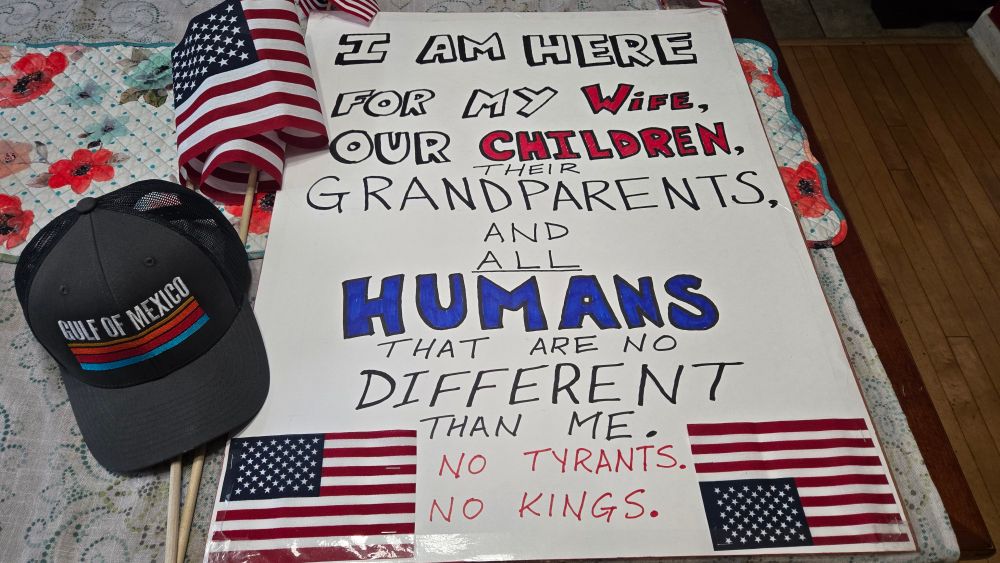 I AM HERE
FOR MY WiFE,
OUR CHILDREN,
THEIR
GRANDPARENTS,
AND
ALL
HUMANS
THAT ARE NO
DIFFERENT
THAN ME.
NO TYRANTS.
NO KINGS.
GULF OF MEXICO